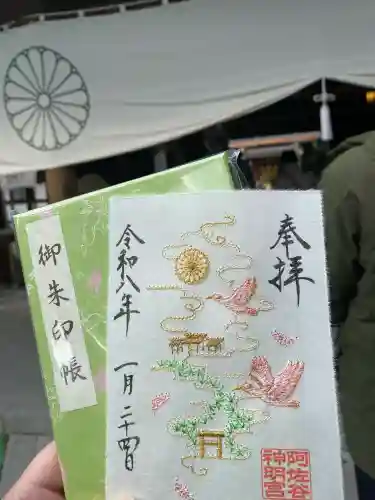 奉拝
令和八年
一月二十四日
阿佐谷
神明宮
御朱印帳